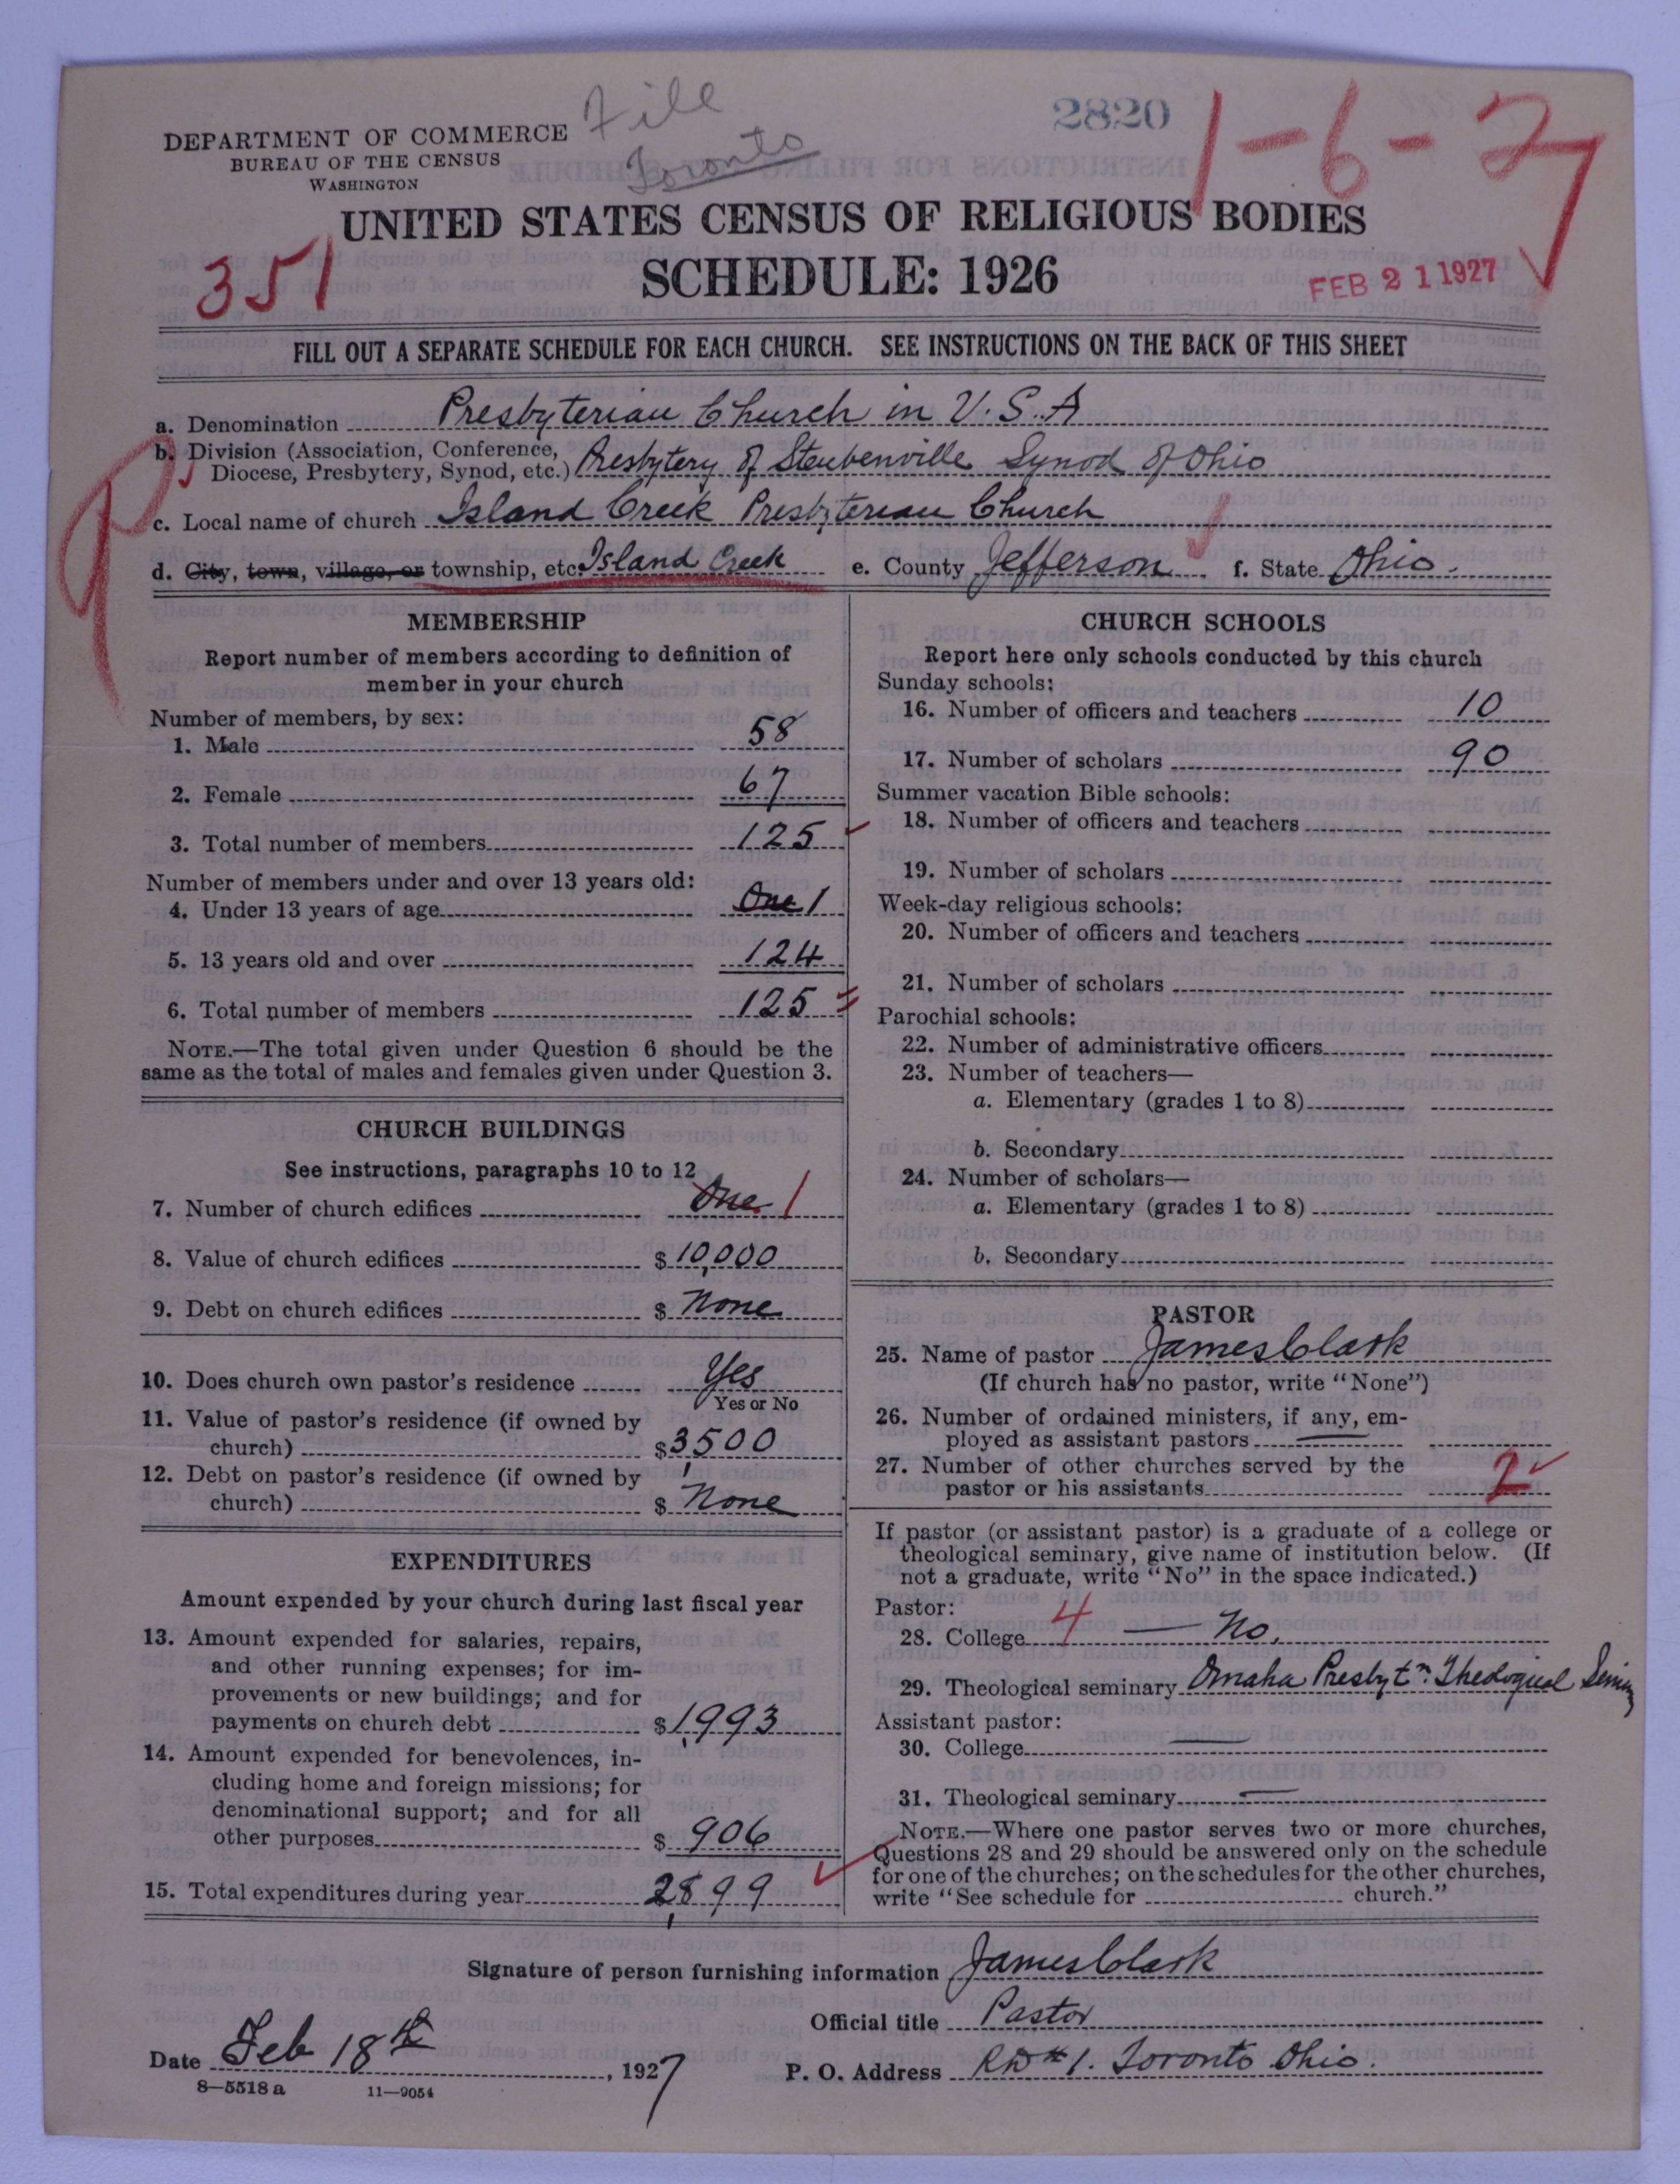 File
Toronto
2820
1-6-27
DEPARTMENT OF COMMERCE
BUREAU OF THE CENSUS
WASHINGTON
UNITED STATES CENSUS OF RELIGIOUS BODIES
351
SCHEDULE: 1926
FEB 21 1927
FILL OUT A SEPARATE SCHEDULE FOR EACH CHURCH. SEE INSTRUCTIONS ON THE BACK OF THIS SHEET
a. Denomination Presbyterian Church in U.S.A
b. Division (Association, Conference,
Diocese, Presbytery, Synod, etc.) Presbytery of Steubenville Synod of Ohio
c. Local name of church Island Creek Presbyterian Church
d. City, town, village, or township, etc. Island Creek e. County Jefferson f. State Ohio.
R
MEMBERSHIP
Report number of members according to definition of
member in your church
Number of members, by sex:
1. Male 58
2. Female 67
3. Total number of members 125
Number of members under and over 13 years old:
4. Under 13 years of age One 1
5. 13 years old and over 124
6. Total number of members 125
NOTE.—The total given under Question 6 should be the
same as the total of males and females given under Question 3.
CHURCH BUILDINGS
See instructions, paragraphs 10 to 12
7. Number of church edifices One 1
8. Value of church edifices $ 10,000
9. Debt on church edifices $ None
10. Does church own pastor's residence Yes
Yes or No
11. Value of pastor's residence (if owned by
church) $ 3,500
12. Debt on pastor's residence (if owned by
church) $ None
EXPENDITURES
Amount expended by your church during last fiscal year
13. Amount expended for salaries, repairs,
and other running expenses; for im-
provements or new buildings; and for
payments on church debt $ 1,993
14. Amount expended for benevolences, in-
cluding home and foreign missions; for
denominational support; and for all
other purposes $ 906
15. Total expenditures during year 2,899
CHURCH SCHOOLS
Report here only schools conducted by this church
Sunday schools:
16. Number of officers and teachers 10
17. Number of scholars 90
Summer vacation Bible schools:
18. Number of officers and teachers
19. Number of scholars
Week-day religious schools:
20. Number of officers and teachers
21. Number of scholars
Parochial schools:
22. Number of administrative officers
23. Number of teachers—
a. Elementary (grades 1 to 8)
b. Secondary
24. Number of scholars—
a. Elementary (grades 1 to 8)
b. Secondary
PASTOR
25. Name of pastor James Clark
(If church has no pastor, write "None")
26. Number of ordained ministers, if any, em-
ployed as assistant pastors —
27. Number of other churches served by the
pastor or his assistants 2
If pastor (or assistant pastor) is a graduate of a college or
theological seminary, give name of institution below. (If
not a graduate, write "No" in the space indicated.)
Pastor:
28. College 4 — No.
29. Theological seminary Omaha Presbytn. Theological Semin
Assistant pastor:
30. College —
31. Theological seminary —
NOTE.—Where one pastor serves two or more churches,
Questions 28 and 29 should be answered only on the schedule
for one of the churches; on the schedules for the other churches,
write "See schedule for church."
Signature of person furnishing information James Clark
Official title Pastor
Date Feb 18th, 1927
P. O. Address RD #1. Toronto Ohio.
8—5518 a 11—9054